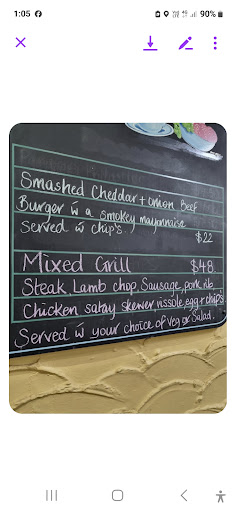 1:05
90%
Smashed Cheddar + onion Beef
Burger w̄ a smokey mayonnaise
Served w̄ chip's
$22
Mixed Grill $48
Steak Lamb chop Sausage, pork rib
Chicken satay skewer rissole, egg + chips.
Served w̄ your choice of Veg or Salad.